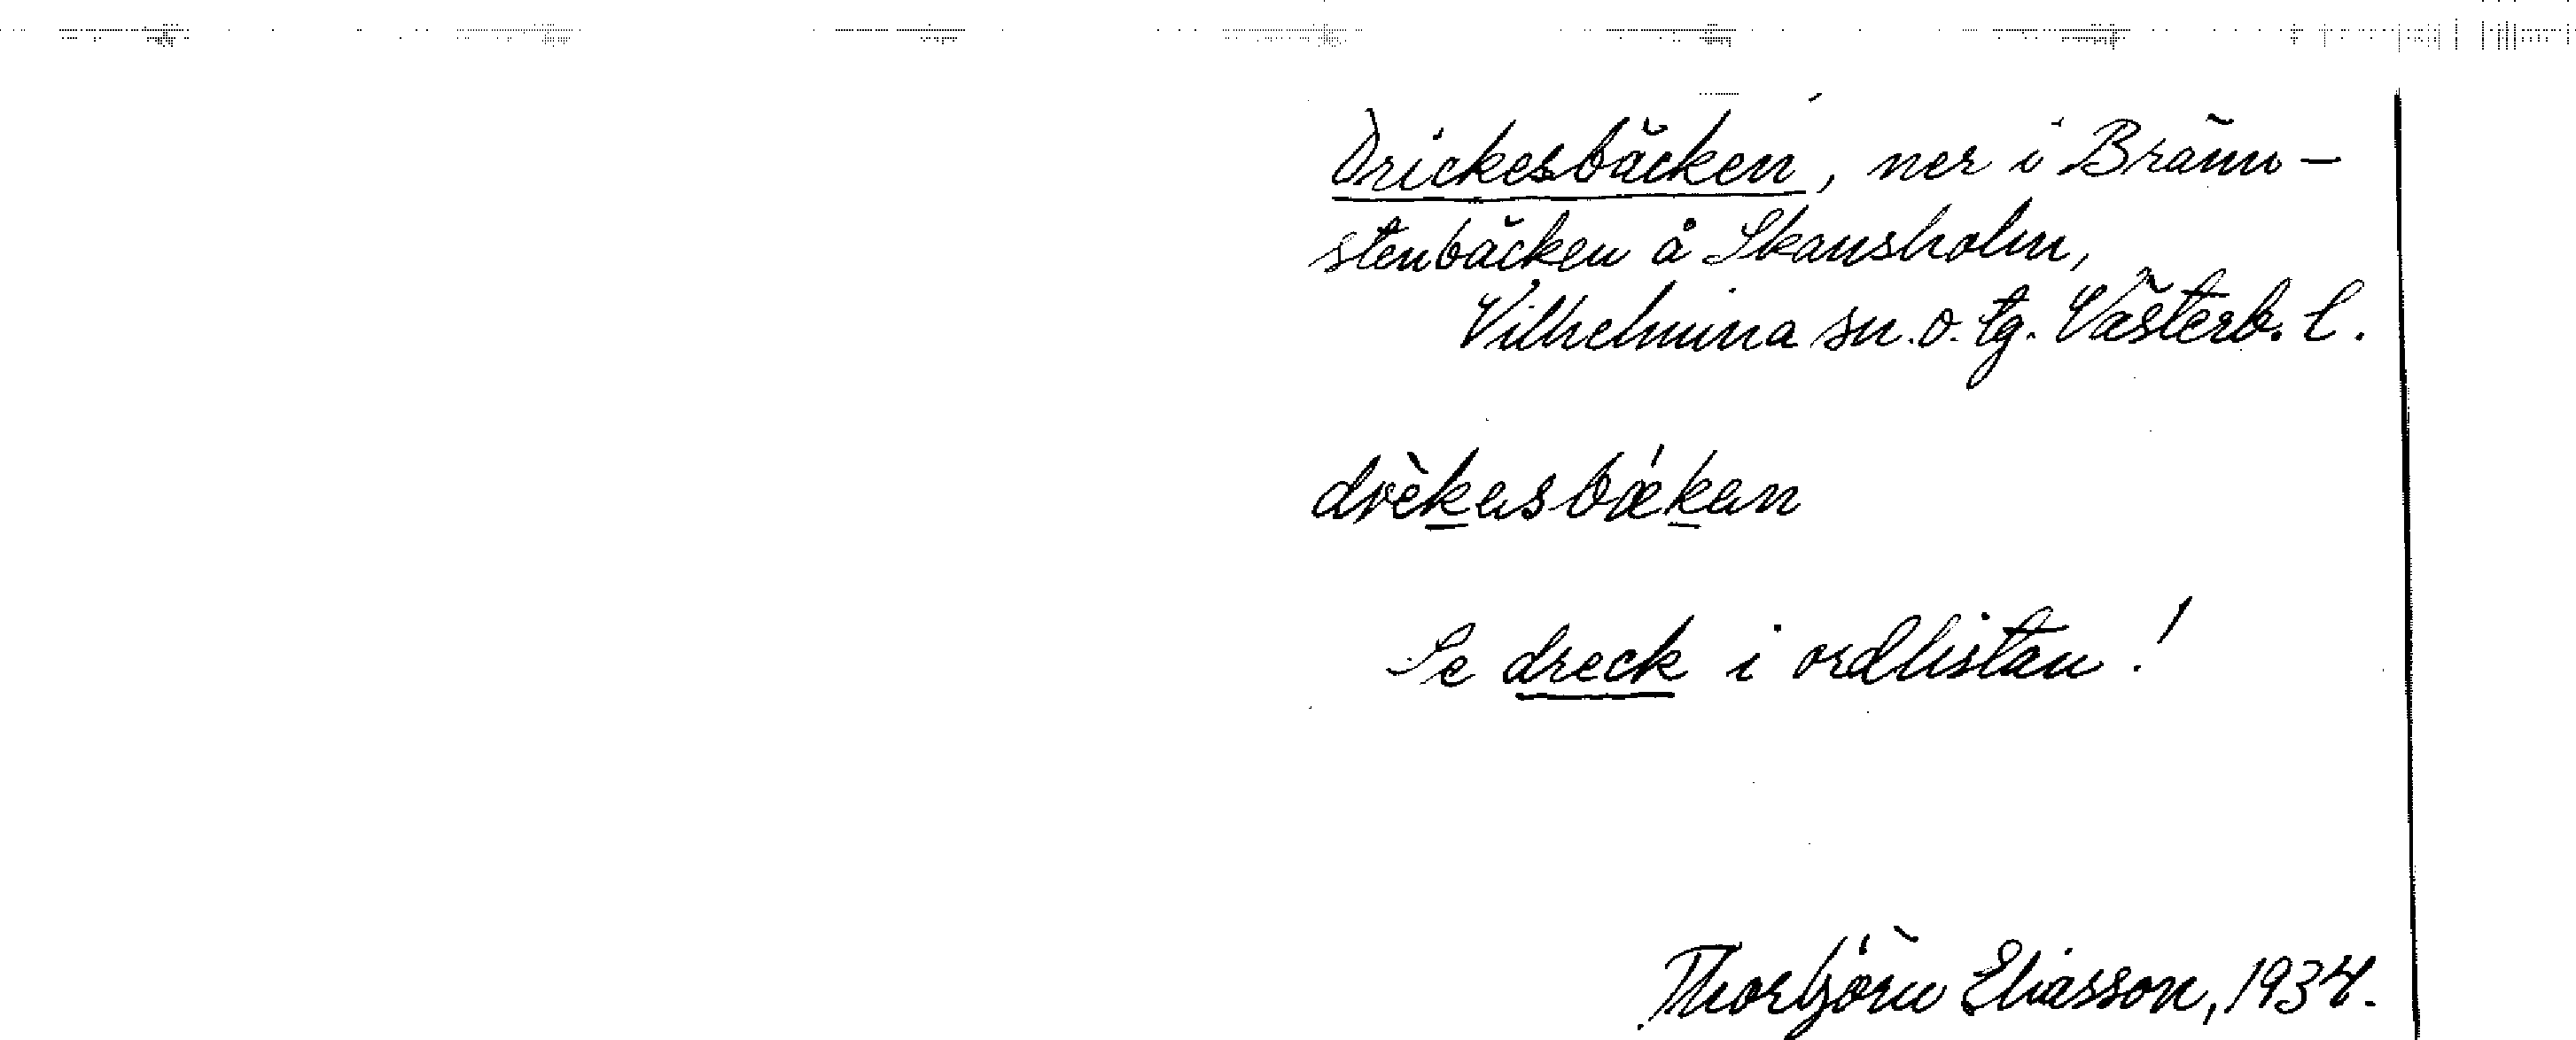 Drickesbäcken, ner i Bränn-
stenbäcken å Skansholm,
Vilhelmina sn. o. tg. Västerb. l.
drèkasbǽkan
Se dreck i ordlistan!
Thorbjörn Eliasson, 1934.